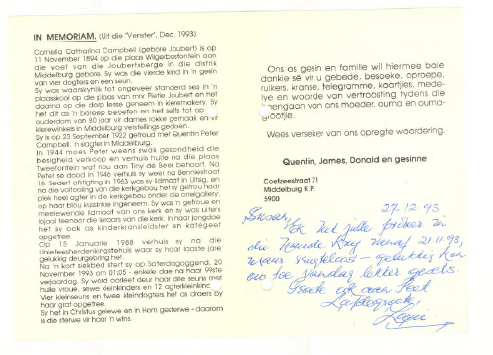 IN MEMORIAM. (Uit die "Venster", Dec. 1993)
Cornelia Catharina Campbell (gebore Joubert) is op
11 November 1894 op die plaas Wilgerbosfontein aan
die voet van die Joubertsberge in die distrik
Middelburg gebore. Sy was die vierde kind in 'n gesin
van vier dogters en een seun.
Sy was waarskynlik tot ongeveer standerd ses in 'n
plaasskool op die plaas van mnr Pietie Joubert en het
daarna op die dorp lesse geneem in kleremakery. Sy
het dit as 'n beroep beoefen en het selfs tot op
ouderdom van 80 jaar vir dames rokke gemaak en vir
klerewinkels in Middelburg verstellings gedoen.
Sy is op 23 September 1922 getroud met Quentin Peter
Campbell, 'n slagter in Middelburg.
In 1944 moes Peter weens swak gesondheid die
besigheid verkoop en verhuis hulle na die plaas
Tweefontein wat nou aan Tiny de Beer behoort. Na
Peter se dood in 1946 verhuis sy weer na Bennie straat
16. Sedert stigting in 1963 was sy lidmaat in Uitsig, en
na die voltooiing van die kerkgebou het sy getrou haar
plek heel agter in die kerkgebou onder die orrelgallery,
op haar blou kussinkie ingeneem. Sy was 'n getroue en
meelewende lidmaat van ons kerk en sy was uiters
lojaal teenoor die leraars van die kerk. In haar jong dae
het sy ook as kinderkransleidster en kategeet
opgetree.
Op 15 Januarie 1988 verhuis sy na die
Unieffeesherdenkingstehuis waar sy haar laaste jare
gelukkig deurgebring het.
Na 'n kort siekbed sterf sy op Saterdagoggend, 20
November 1993 om 01:05 - enkele dae na haar 99ste
verjaardag. Sy word oorleef deur haar drie seuns met
hulle vroue, sewe kleinkinders en 12 agterkleinkinders.
Vier kleinseuns en twee kleindogters het as draers by
haar graf opgetree.
Sy het in Christus gelewe en in Hom gesterwe - daarom
is die sterwe vir haar 'n wins.
Ons as gesin en familie wil hiermee baie
dankie sê vir u gebede, besoeke, oproepe,
ruikers, kranse, telegramme, kaartjies, mede-
lye en woorde van vertroosting tydens die
heengaan van ons moeder, ouma en ouma-
grootjie.
Wees verseker van ons opregte waardering.
Quentin, James, Donald en gesinne
Coetzeestraat 71
Middelburg K.P.
5900
27.12.93
Ek het julle
die vanaf 21.11.93,
gelukkig kan
ons toe vandag lekker gesels.
Groete ook aan
Liefdegroete,